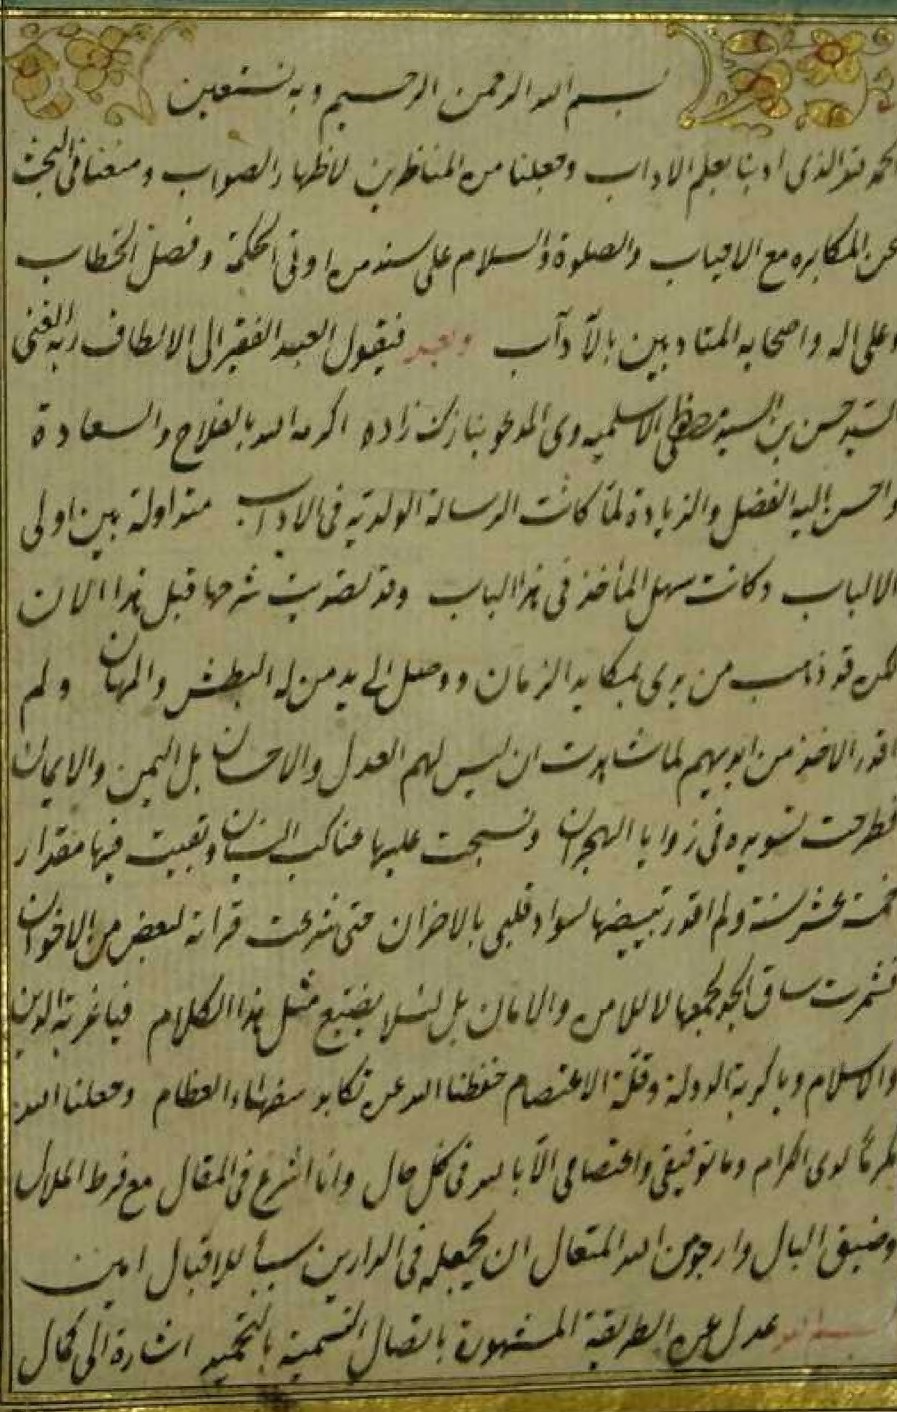 بسم الله الرحمن الرحيم وبه نستعين
الحمد لله الذى ادبنا بعلم الاداب وجعلنا من المناظرين لاظهار الصواب ومنعنا فى البحث
عن المكابره مع الاحباب والصلوة والسلام على سند من اوتى الحكمة وفصل الخطاب
وعلى اله واصحابه المتادبين بالآدآب وبعد فيقول العبد الفقير الى الالطاف ربه الغنى
السيد حسن بن السيد مصطفى الاسلميه وى المدعو بنازك زاده اكرمه الله بالفلاح والسعادة
واحسن اليه الفضل والزيادة لما كانت الرسالة الولدية فى الاداب متداولة بين اولى
الالباب وكانت سهل المأخذ فى هذا الباب وقد تصديت شرحها قبل هذا الان
لكن قد ذهب من يدى بمكايد الزمان ووصل الى يد من له البطش والمهان ولم
اقدر الاخذ من ايديهم لما شاهدت ان ليس لهم العدل والاحسان بل اليمن والايمان
فطرحت تسويده فى زوايا الهجران ونسجت عليها عناكب النسيان وبقيت فيها مقدار
خمسة عشر سنة ولم اقدر تبييضها لسواد قلبى بالاحزان حتى شرعت قرائة لبعض من الاخوان
فشمرت ساق الجد لجمعها لا للامن والامان بل لئلا يضيع مثل هذا الكلام فيا غربة الدين
والاسلام ويا كربة الدولة وقلة الاعتصام حفظنا الله عن تكابد سفهاء العظام وجعلنا الله
مكرما لدى الكرام وما توفيقى واعتصامى الا بالله فى كل حال وانا اشرع فى المقال مع فرط الملال
وضيق البال وارجو من الله المتعال ان يجعله فى الدارين سببا للاقبال امين
بسم الله عدل عن الطريقة المشهورة باتصال التسمية بالتحميد اشارة الى كمال